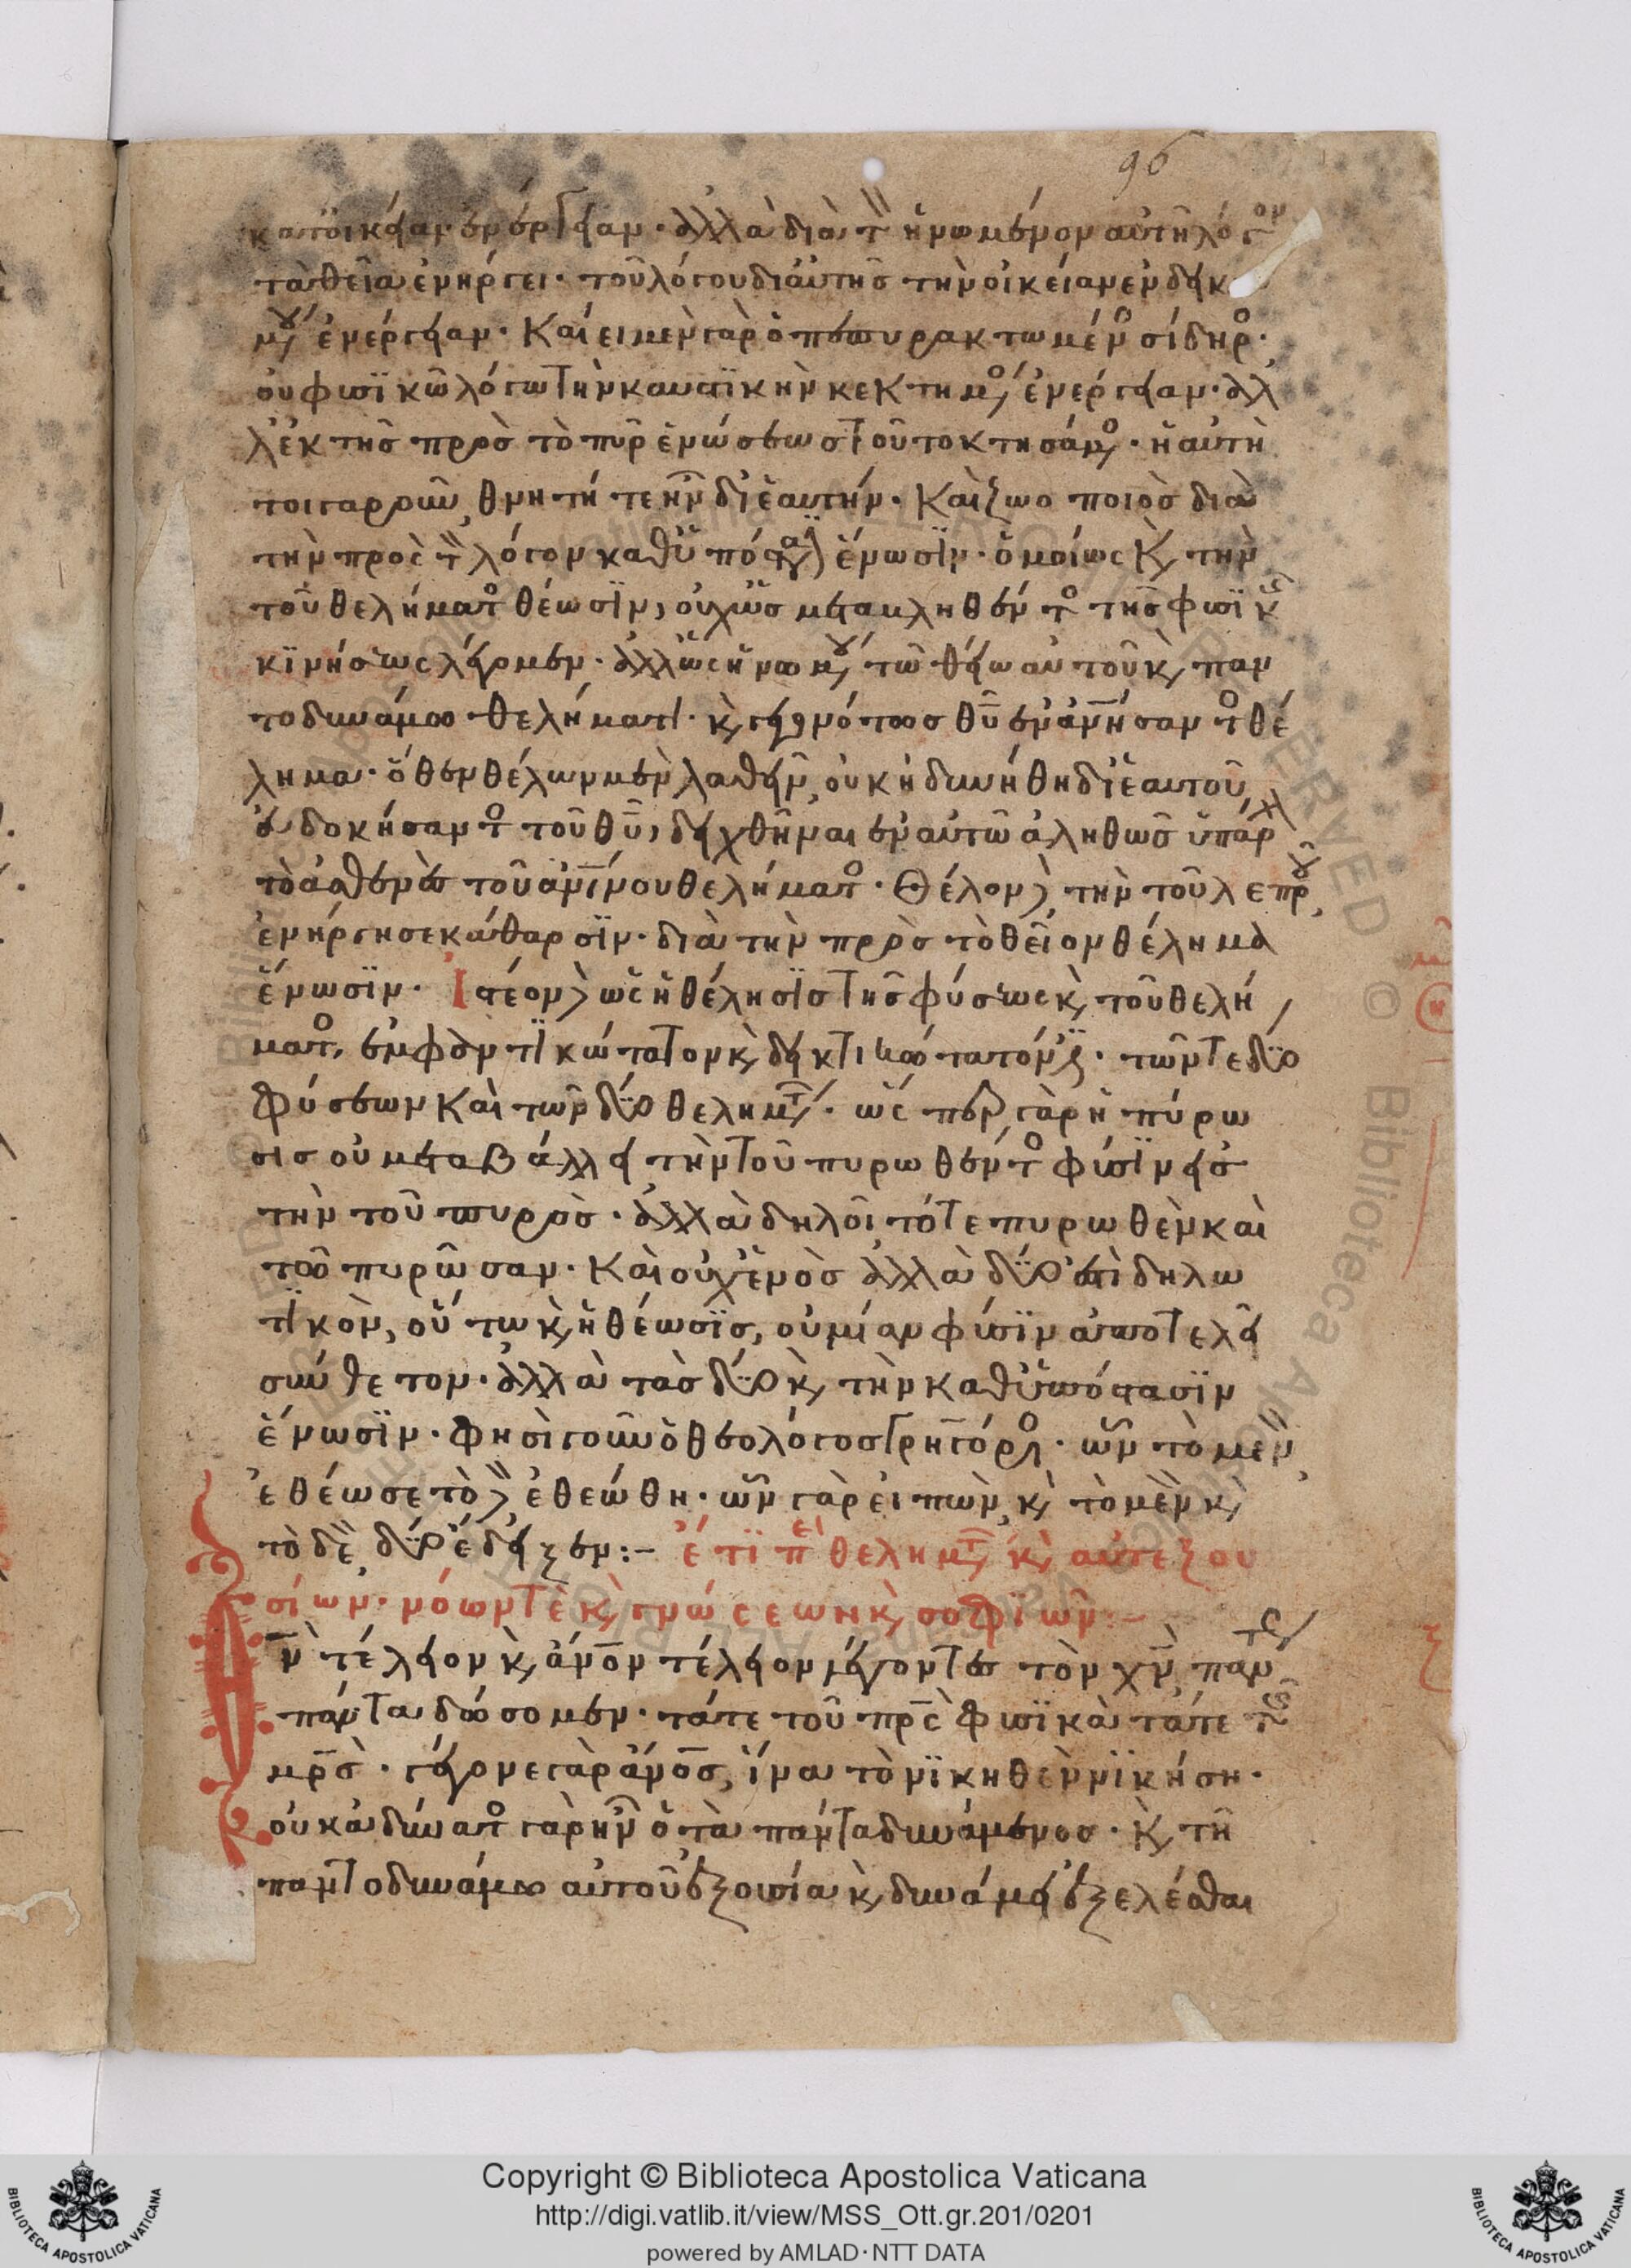 96
κατ' οἰκείαν ἐνέργειαν· ἀλλὰ διὰ τὸν ἡνωμένον αὐτῆ λόγον
τὰ θεῖα ἐνήργει· τοῦ λόγου δι' αὐτῆς τὴν οἰκείαν ἐνδεικ
μένου ἐνέργειαν· Καὶ εἰ μὲν γὰρ ὁ πεπυρακτωμένος σίδηρος·
οὐ φυσικῶ λόγω τὴν καυστικὴν κεκτημένος ἐνέργειαν· ἀλ
λ' ἐκ τῆς πρὸς τὸ πῦρ ἑνώσεως τοῦτο κτησάμενος· ἡ αὐτὴ
τοιγαροῦν, θνητή τε ἦν δι' ἑαυτήν· Καὶ ζωοποιὸς διὰ
τὴν πρὸς τὸν λόγον καθ' ὑπόστασιν ἕνωσιν· ὁμοίως καὶ τὴν
τοῦ θελήματος θέωσιν, οὐχ ὡς μετακληθέντος τῆς φυσικῆς
κινήσεως λέγομεν· ἀλλ' ὡς ἡνωμένου τῶ θείω αὐτοῦ καὶ παν
τοδυνάμω θελήματι· καὶ γεγονότος θυ ἐνανήσαντος θέ
λημα· ὅθεν θέλων μὲν λαθεῖν, οὐκ ἠδυνήθη δι' ἑαυτοῦ,
εὐδοκήσαντος τοῦ θυ, δειχθῆναι ἐν αὐτῶ ἀληθῶς ὑπάρχ
τὸ ἀσθενὲς τοῦ ἀνίνου θελήματος· Θέλον δὲ, τὴν τοῦ λεπροῦ
ἐνήργησε κάθαρσιν· διὰ τὴν πρὸς τὸ θεῖον θέλημα
ἕνωσιν· Ἰστέον δὲ ὡς ἡ θέλησις τῆς φύσεως καὶ τοῦ θελή
ματος, ἐμφαντικώτατον καὶ δεικτικώτατόν ἐστι· τῶν τε δύο
φύσεων καὶ τῶν δύο θελημάτων· ὥς περ γὰρ ἡ πύρω
σις οὐ μεταβάλλει τὴν τοῦ πυρωθέντος φύσιν εἰς
τὴν τοῦ πυρός· ἀλλὰ δηλοῖ τότε πυρωθὲν καὶ
τὸ πυρῶσαν· Καὶ οὐχ ἑνὸς ἀλλὰ δύο ἐστὶ δηλω
τικὸν, οὕτω καὶ ἡ θέωσις, οὐ μίαν φύσιν ἀποτελεῖ
σύνθετον· ἀλλὰ τὰς δύο καὶ τὴν καθ' ὑπόστασιν
ἕνωσιν· Φησὶ γοῦν ὁ θεολόγος γρηγόριος· ὧν τὸ μὲν
ἐθέωσε τὸ δὲ ἐθεώθη· ὧν γὰρ εἰπὼν, καὶ τὸ μὲν καὶ
τὸ δὲ, δύο ἔδειξεν:– ἔτι περὶ θελημάτων καὶ αὐτεξου
σίων· νόων τὲ καὶ γνώσεων καὶ σοφιῶν:–
θν τέλειον καὶ ἄνον τέλειον λέγοντες τὸν χν, πάντες
πάντα δώσομεν· τά τε τοῦ πρς φυσικὰ τά τε τῆς
μρς· γέγονε γὰρ ἄνος, ἵνα τὸ νικηθὲν νικήση·
οὐκ ἀδύνατος γὰρ ἦν ὁ τὰ πάντα δυνάμενος· καὶ τῆ
παντοδυνάμω αὐτοῦ ἐξουσία καὶ δυνάμει ἐξελέσθαι
Copyright © Biblioteca Apostolica Vaticana
http://digi.vatlib.it/view/MSS_Ott.gr.201/0201
powered by AMLAD·NTT DATA
BIBLIOTECA APOSTOLICA VATICANA
BIBLIOTECA APOSTOLICA VATICANA